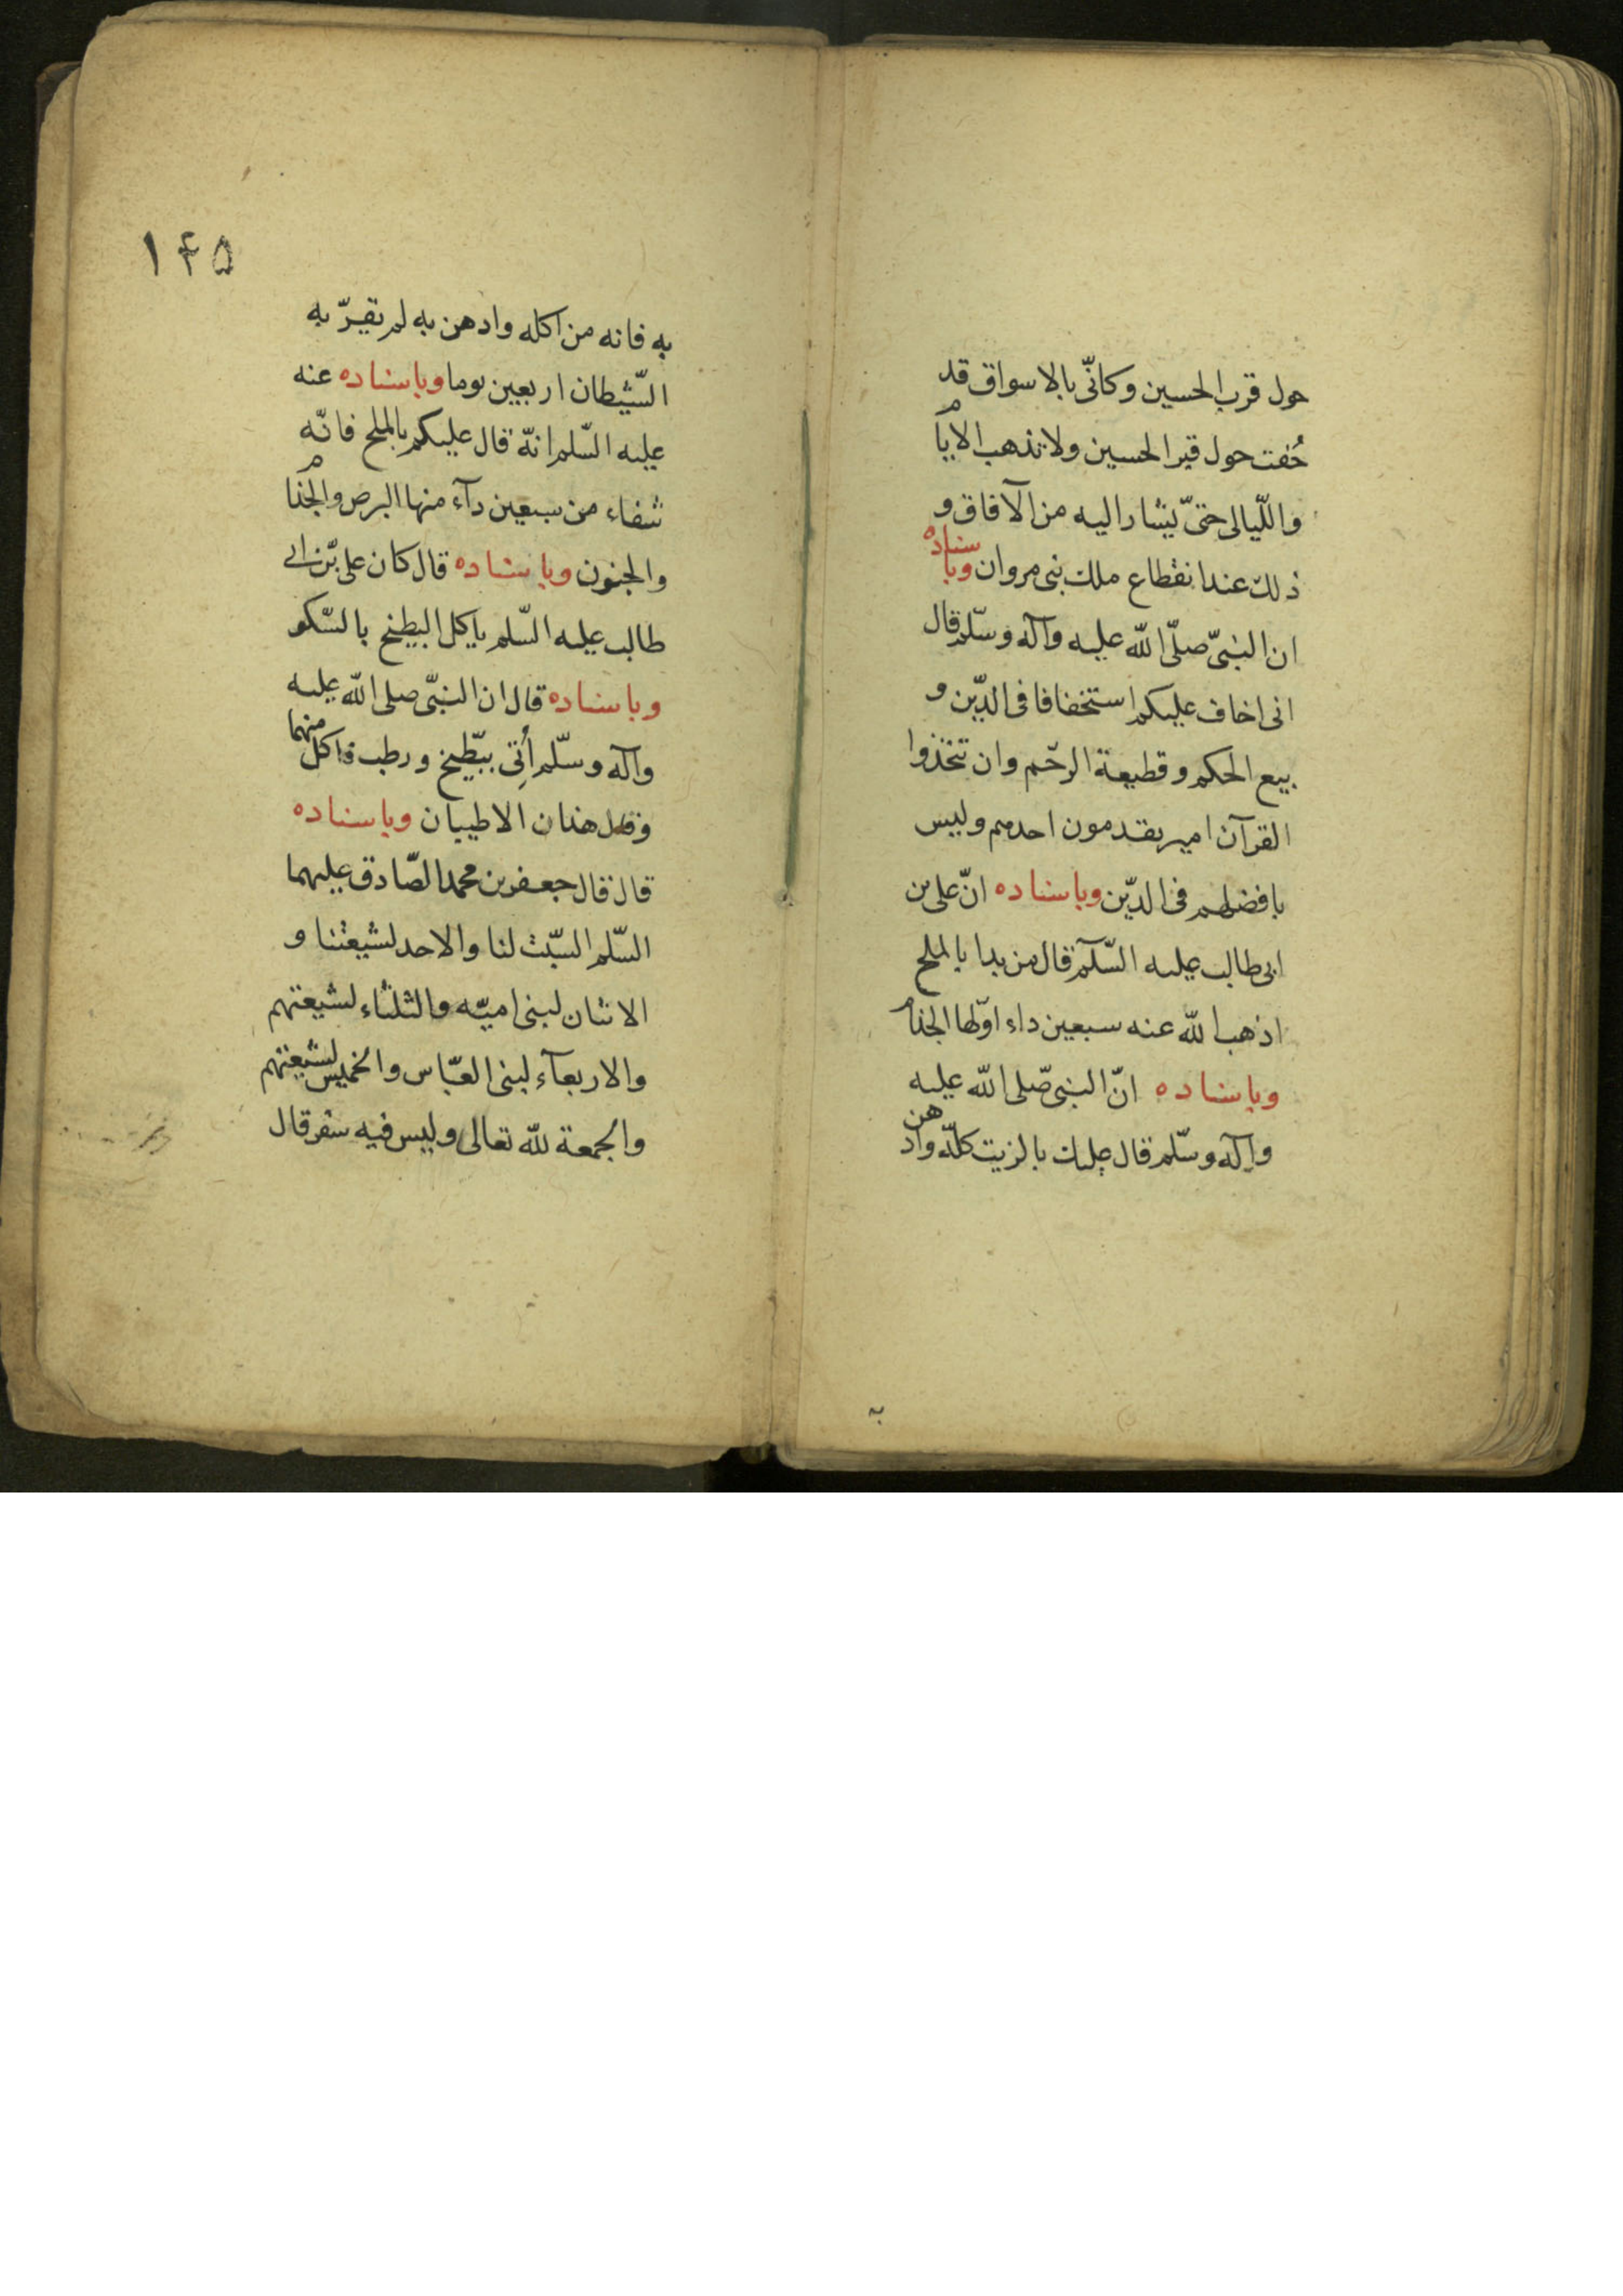 حول قرب الحسين وكانّى بالاسواق قد
حُفت حول قبر الحسين ولا تذهب الايام
واللّيالى حتىّ يشار اليه من الآفاق و
ذلك عند انقطاع ملك بنى مروان وباسناده
ان النبىّ صلّى اللّه عليه وآله وسلّم قال
انى اخاف عليكم استخفافا فى الدّين و
بيع الحكم وقطيعة الرحّم وان تتخذوا
القرآن امير يقدمون احدهم وليس
بافضلهم فى الدّين وباسناده انّ على بن
ابى طالب عليه السّلآم قال من بدا بالملح
اذهب اللّه عنه سبعين داء اوّلها الجذام
وباسناده انّ النبى صّلى اللّه عليه
وآله وسّلم قال عليك بالزيت كلّه وادهن
١۴۵
به فانه من اكله وادهن به لم يقربّه
الشّيطان اربعين يوما وباسناده عنه
عليه السّلم انهّ قال عليكم بالملح فانّه
شفاء من سبعين دآء منها البرص والجذام
والجنون وباسناده قال كان على بّن ابى
طالب عليه السّلم ياكل البطيخ بالسّكر
وباسناده قال ان النبّى صلى اللّه عليه
وآله وسلّم أُتِى ببّطيخ ورطب فاكل منهما
وقال هذان الاطيبان وباسناده
قال قال جعفر بن محمد الصّادق عليهما
السّلم السّبت لنا والاحد لشيعتنا و
الاثنان لبنى اميّه والثلثاء لشيعتهم
والاربعآء لبنى العبّاس والخميس لشيعتهم
والجمعة للّه تعالى وليس فيه سفر قال